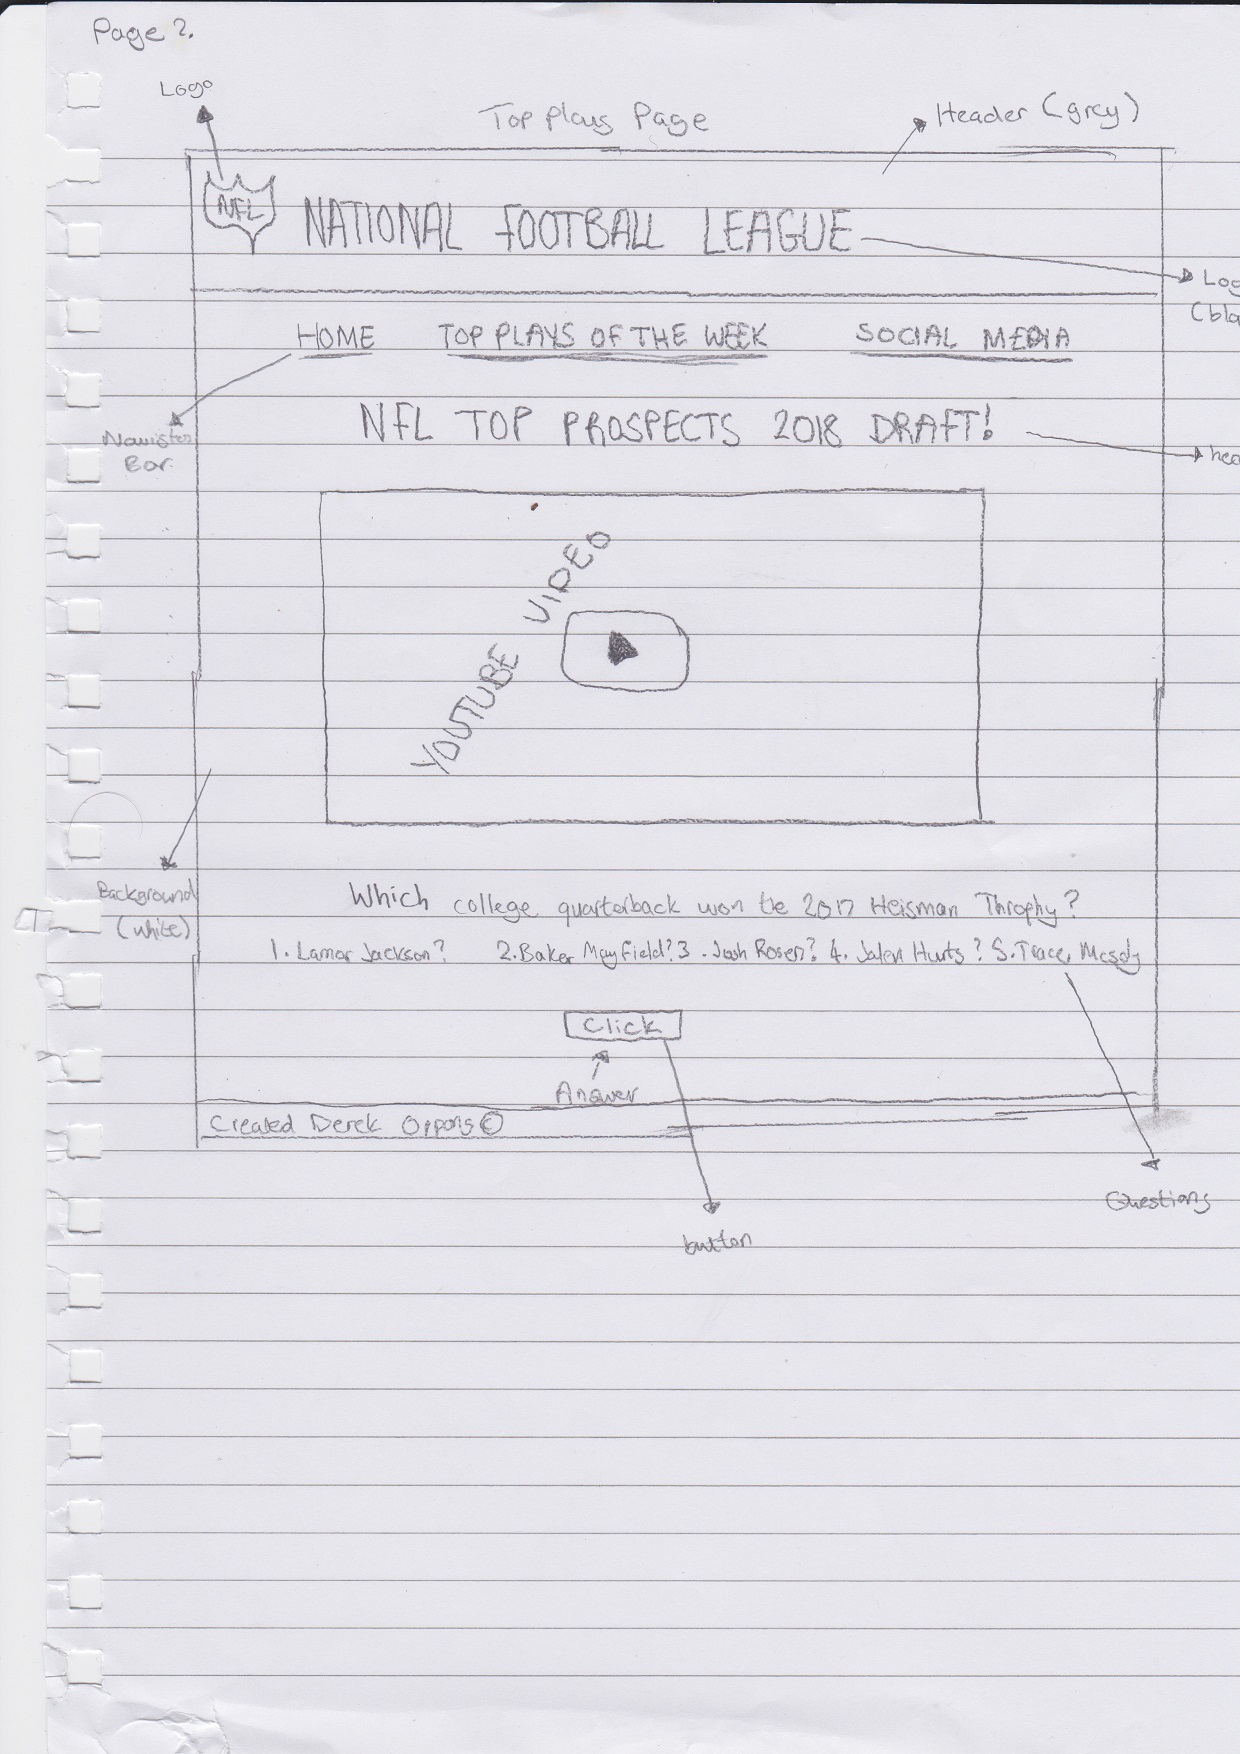 Page 2.
Logo
Top Plays Page
Header (grey)
NFL
NATIONAL FOOTBALL LEAGUE
Log
(bla
HOME TOP PLAYS OF THE WEEK SOCIAL MEDIA
NFL TOP PROSPECTS 2018 DRAFT!
Bar.
hea
YOUTUBE VIDEO
Background
(white)
Which college quarterback won the 2017 Heisman Throphy?
1. Lamar Jackson? 2. Baker Mayfield? 3. Josh Rosen? 4. Jalen Hurts? 5. Trace
Click
Answer
Created Derek ©
Questions
button